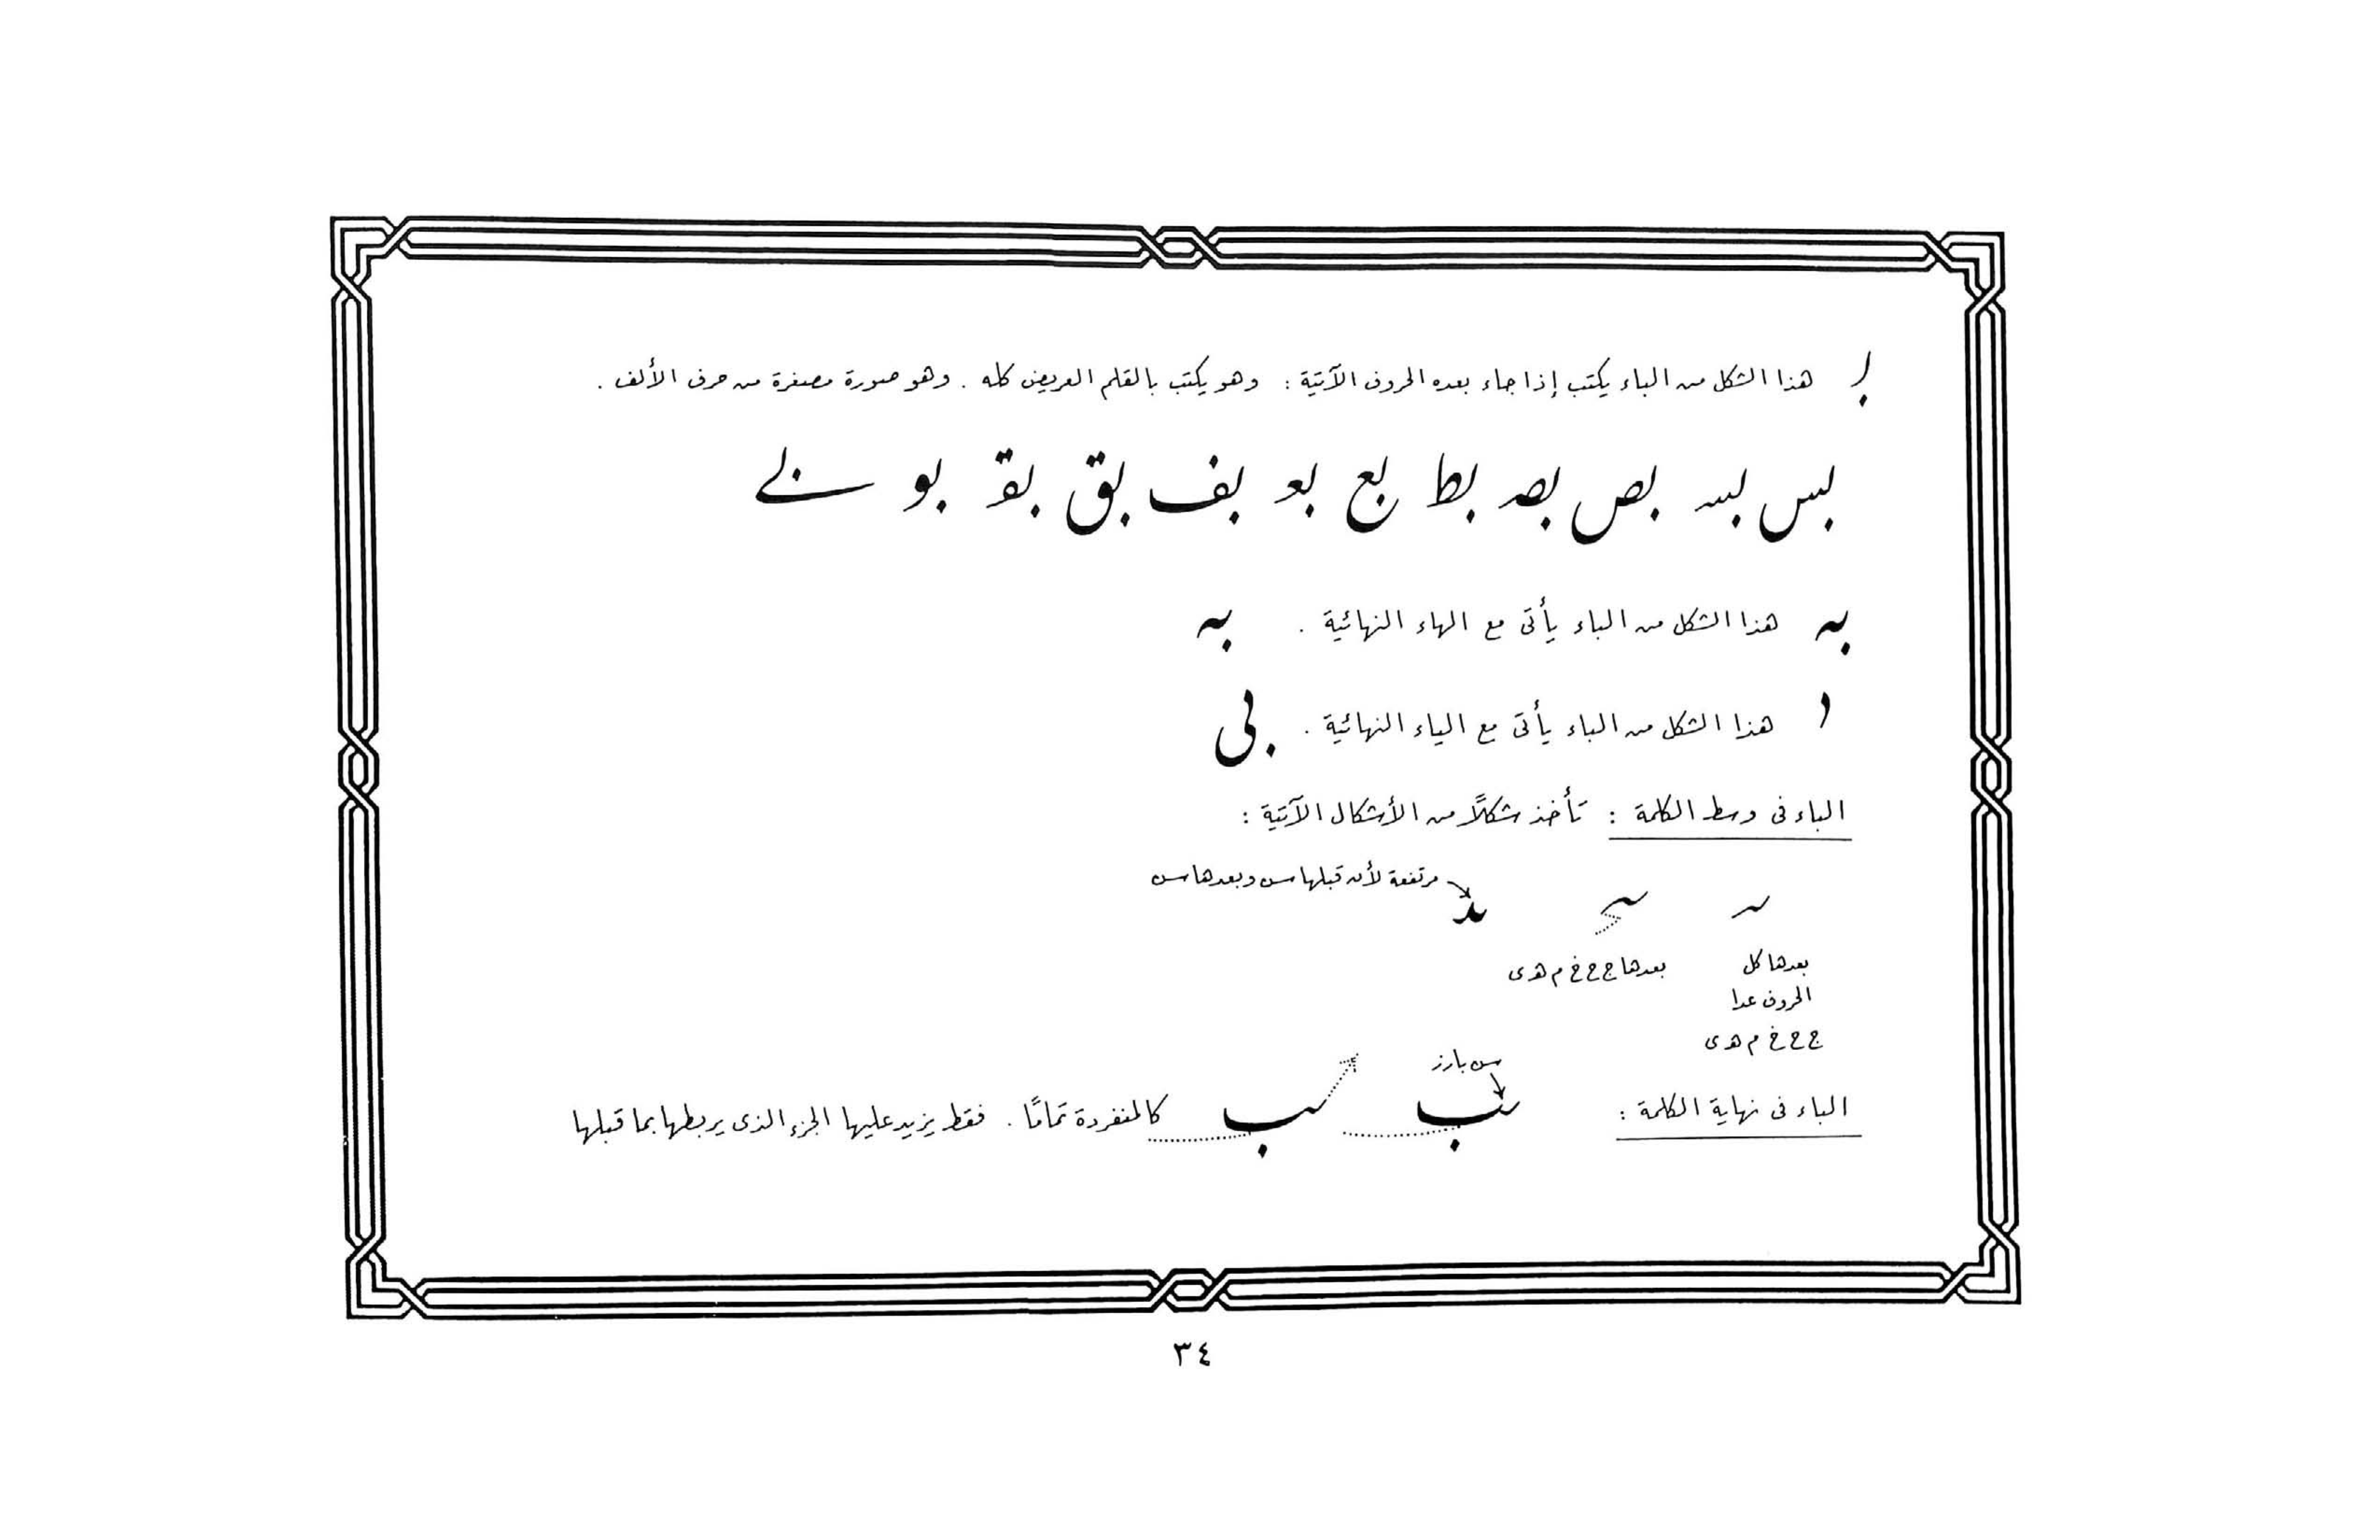 هذا الشكل من الباء يكتب إذا جاء بعده الحروف الآتية : وهو يكتب بالقلم العريض كله . وهو صورة مصغرة من حرف الألف .
بس بسـ بص بصـ بط بع بعـ بف بق بقـ بو
به هذا الشكل من الباء يأتى مع الهاء النهائية . به
هذا الشكل من الباء يأتى مع الياء النهائية . بى
الباء فى وسط الكلمة : تأخذ شكلاً من الأشكال الآتية :
مرتفعة لأن قبلها سن وبعدها سن
بعدها كل
الحروف عدا
ج ح خ م هـ ى
بعدها ج ح خ م هـ ى
سن بارز
الباء فى نهاية الكلمة : ـب ـب كالمنفردة تمامًا . فقط يزيد عليها الجزء الذى يربطها بما قبلها
٣٤